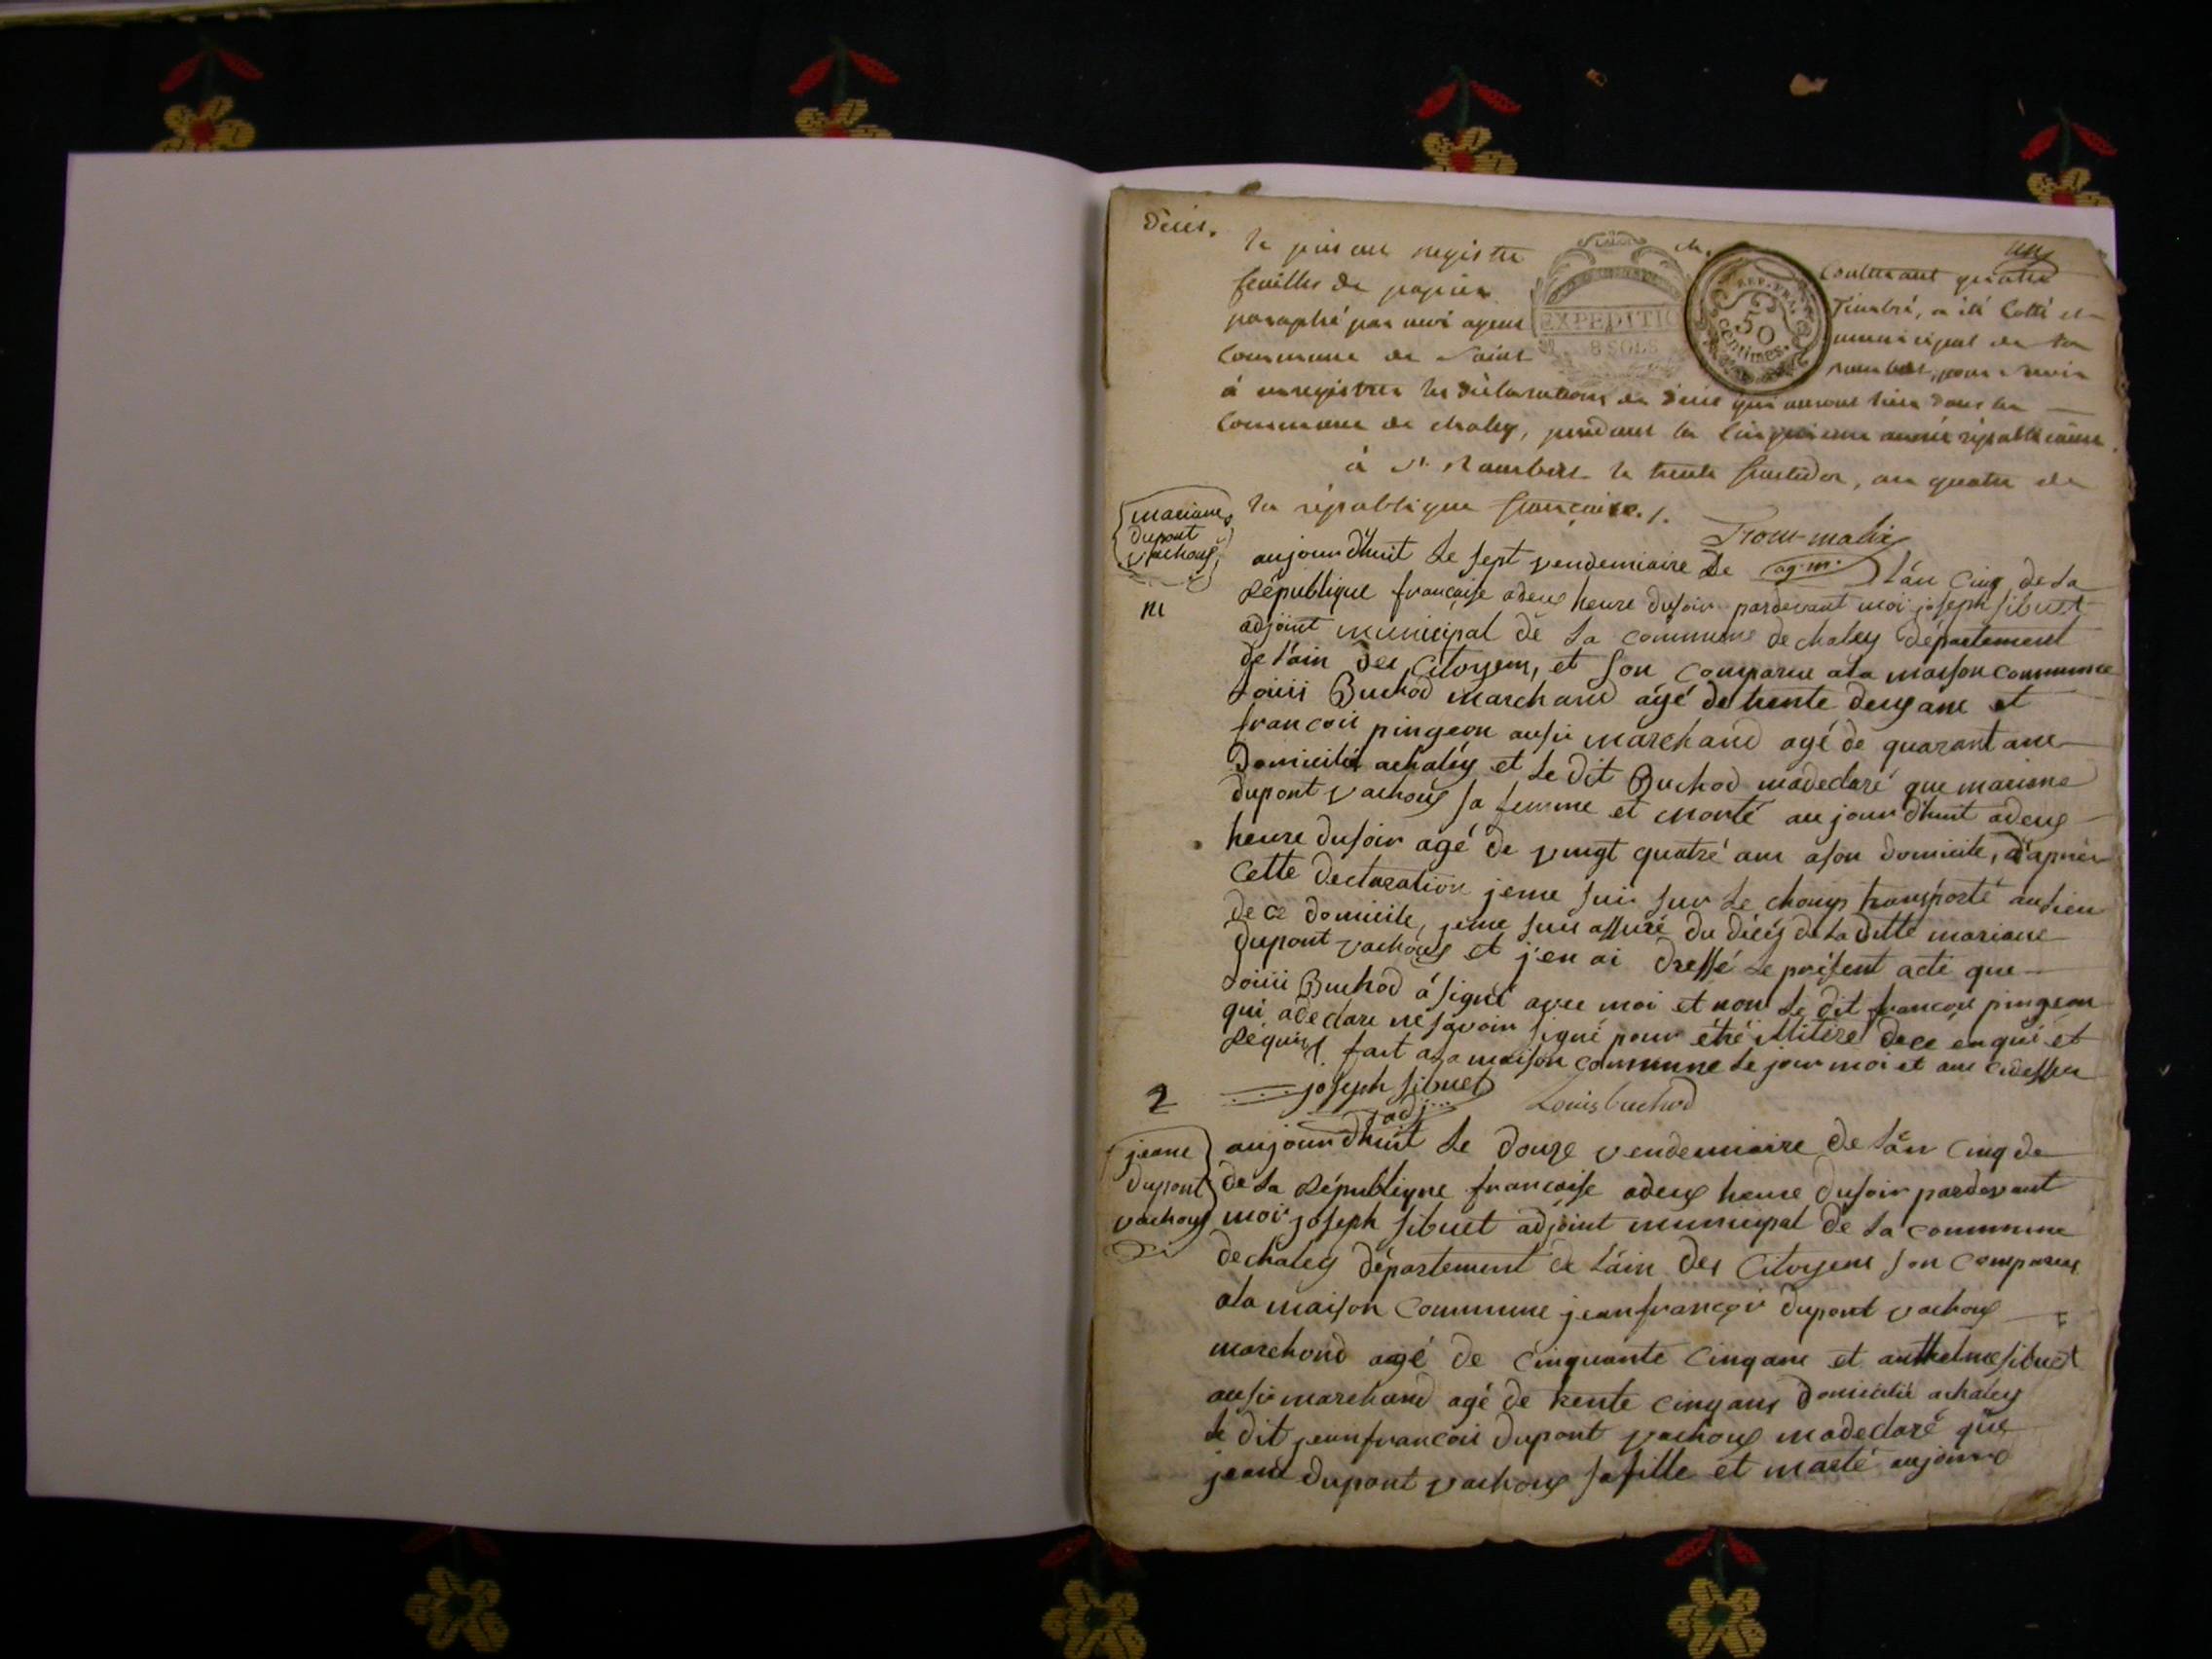 Décès.
un
le présent registre ch. Contenant quatre
feuilles de papier Timbré, a été Cotté et
paraphé par moi agent municipal de la
Commune de Saint rambert, pour servir
EXPEDITIO
8 SOLS
REP. FRA.
50
centimes.
à enregistrer les déclarations de décès qui auront lieu dans la
Commune de chaley, pendant la Cinquieme année républicaine.
à St. Rambert le trente fructidor, an quatre de
la république française./.
ag. m.
mariane
dupont
vachoux
aujourdhuit Le sept vendemiaire de Lân Cinq de La
République francaise adeux heure dusoir pardevant moi joseph sibuet
adjoint municipal de La commune de chaley département
de L'ain des Citoyens, et son comparue ala maison commune
Louis Buchod marchand agé de trente deux ans et
francois pingeon ausi marchand agé de quarant ans
Domicilié achaley et Le dit Buchod madeclaré que mariane
dupont vachoux sa femme et morté aujourdhuit adeux
heure dusoir agé de vingt quatré ans ason domicile, d'apnès
Cette declaration jeme suis sur Le champs transporté auLieu
de ce domicile, jeme suis assuré du décés de La ditte mariane
dupont vachoux et j'en ai dressé Le présent acté que
Louis Buchod á signé avec moi et non Le dit francois pingeon
qui adeclare né savoir signé pour étré illitéré dece enquí et
Réquis. fait ala maison commune Le jour moi et ans cidessus
joseph sibuet
adj...
Louis buchod
2
jeane
dupont
vachoux
aujourdhuit Le douze vendemiaire de Lân Cinq de
de La République francaise adeux heure dusoir pardevant
moi joseph sibuet adjoint municipal de La commune
dechaley département de Láin des Citoyens son comparus
ala maison Commune jeanfrançois dupont vachoux
marchand agé de Cinquante Cinq ans et anthelme sibuet
ausi marchand agé de trente cinq ans domicilié achaley
Le dit jeanfrancois dupont vachoux madeclaré que
jeane dupont vachoux safille et marté aujourd